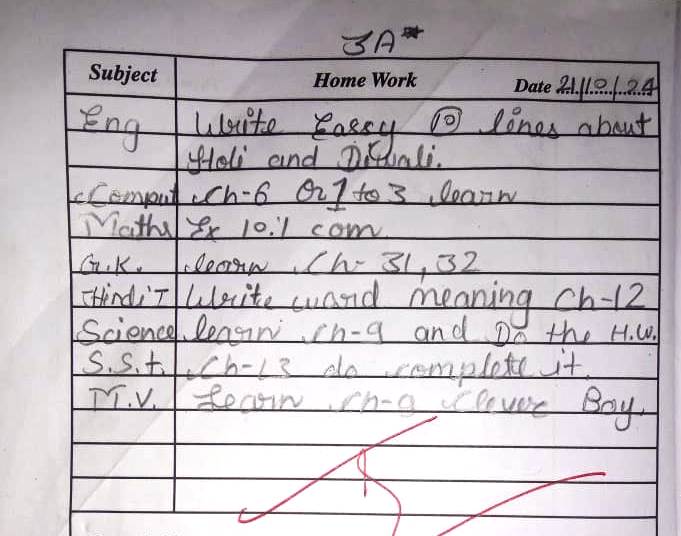 3A*
Subject Home Work Date 21/10/24
Eng Write Eassy 10 lines about
Holi and Diwali.
Comput Ch-6 Q21 to 3 learn
Maths Ex 10.1 com
G.K. learn Ch- 31, 32
Hindi T Write ward meaning Ch-12
Science learn ch-9 and Do the H.W.
S.S.t. Ch-13 do complete it.
M.V. Learn ch-9 Clever Boy.